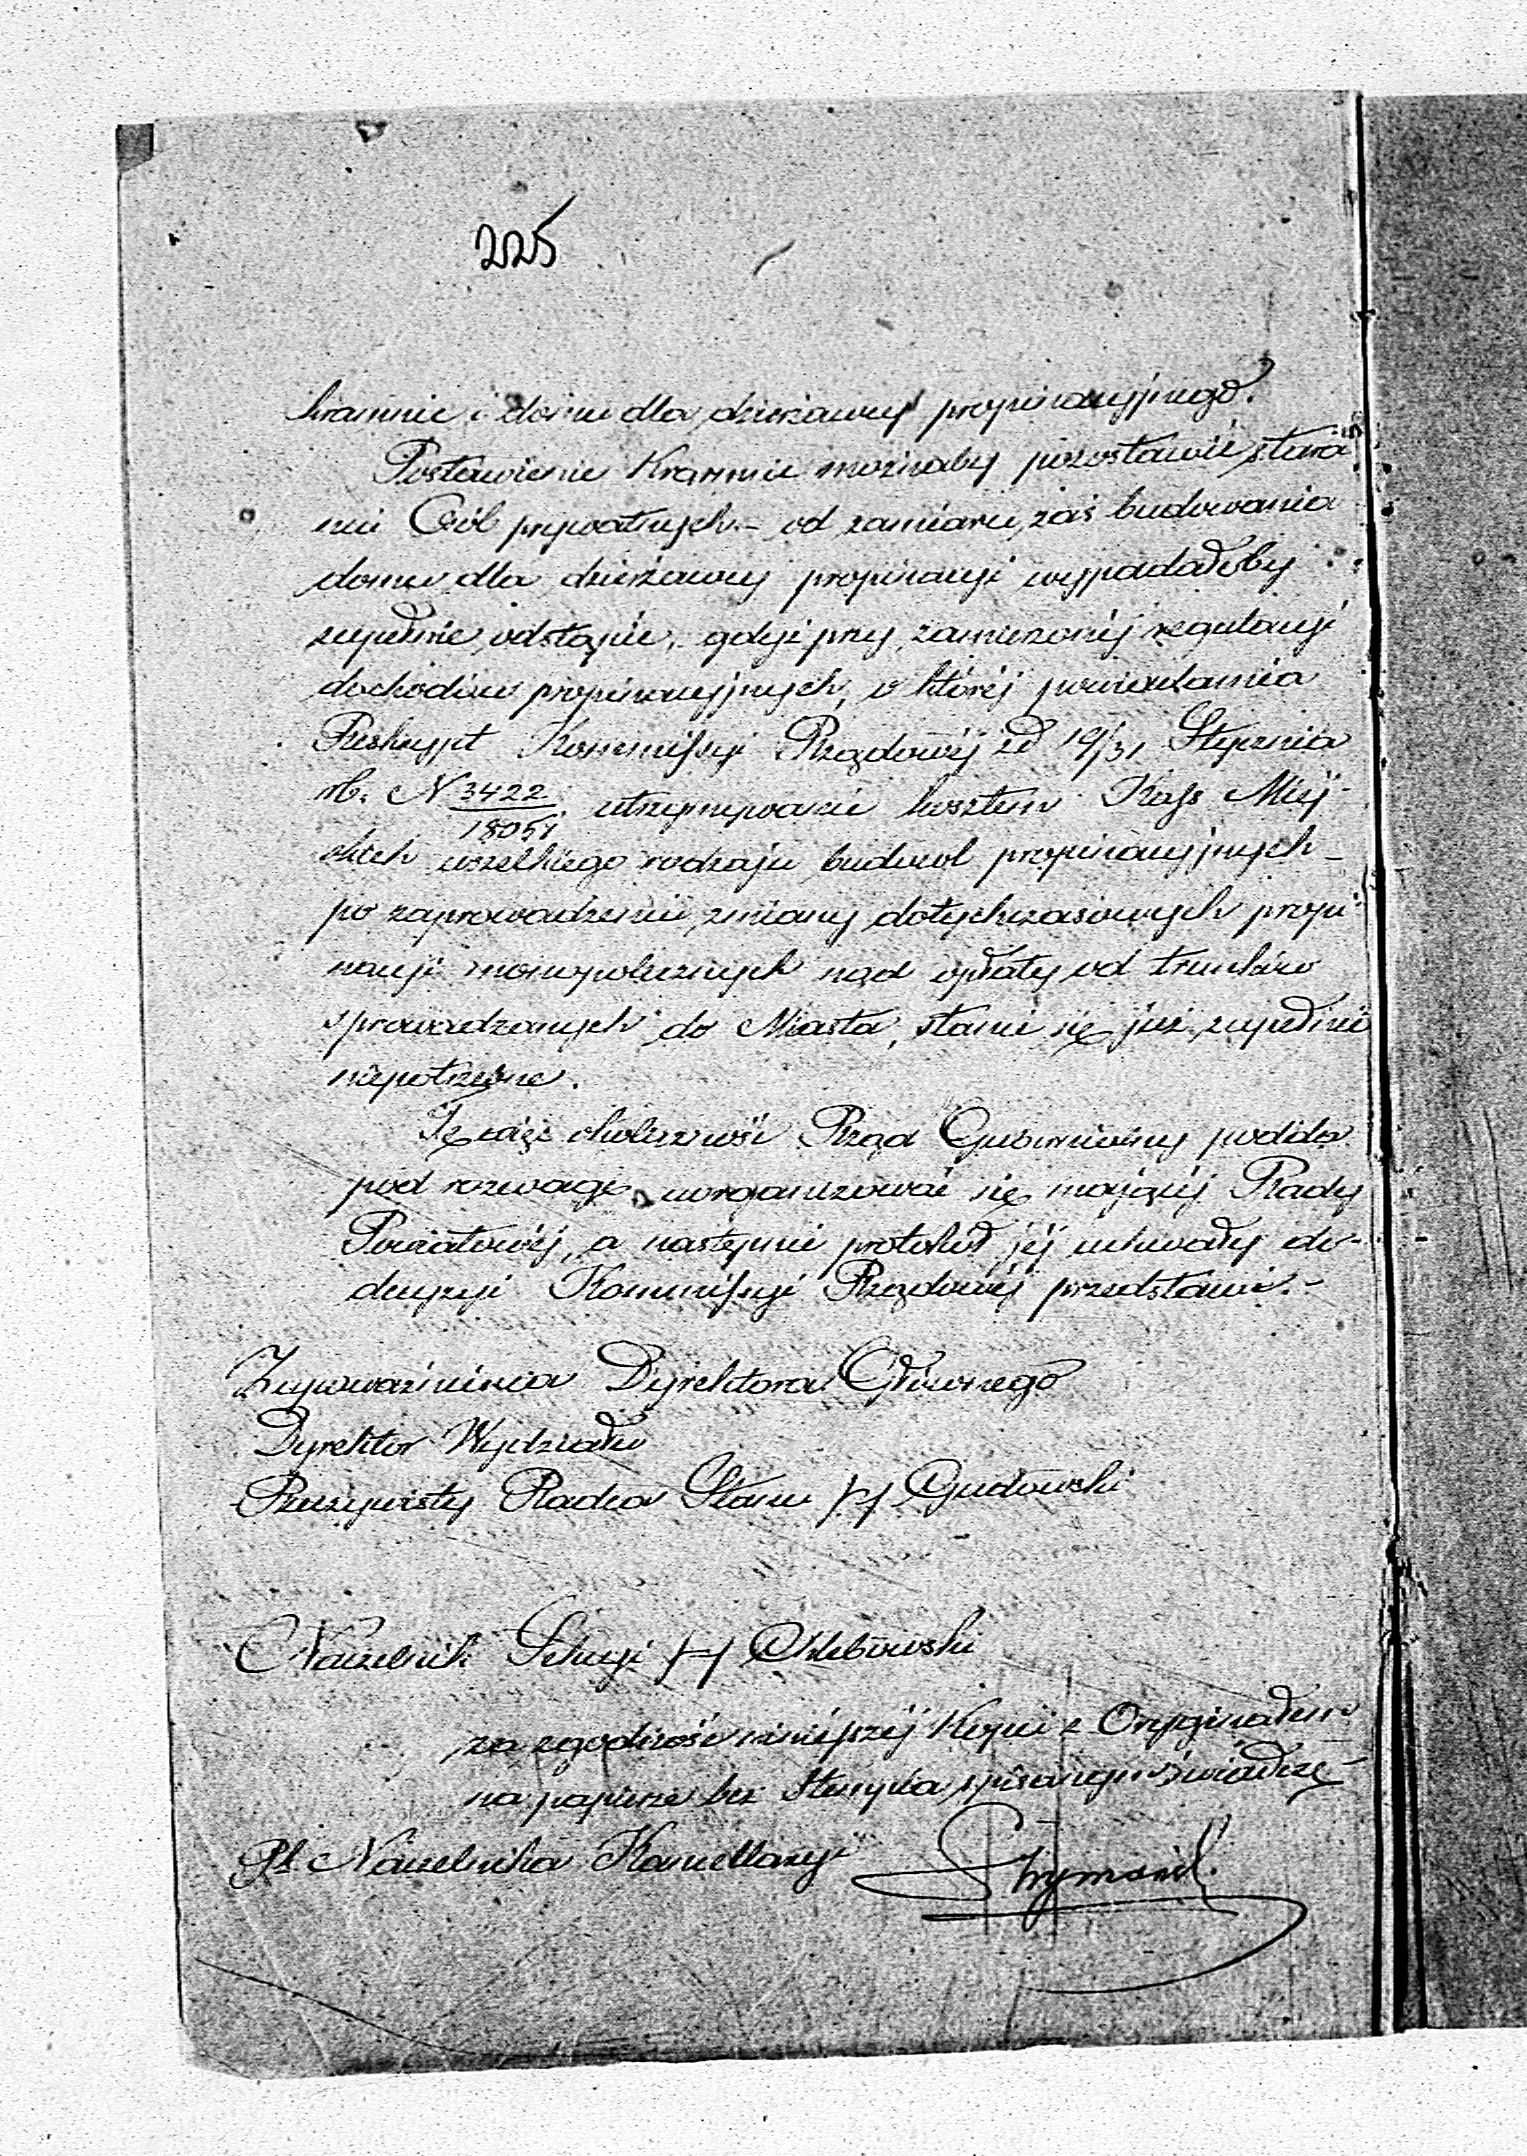 225
kramnic i domu dla dzierżawcy propinacyjnego.
Postawienie Kramnic możnaby pozostawić stara
niu Osób prywatnych – od zamiaru zaś budowania
domu dla dzierżawcy propinacyi wypadałoby
zupełnie odstąpić, gdyż przy zamierzonej regulacyi
dochodów propinacyjnych, o której powiadamia
Reskrypt Kommissyi Rządowej z d 19/31 Stycznia
rb. N 3422/18051 utrzymywanie kosztem Kass Miej-
skich wszelkiego rodzaju budowl propinacyjnych –
po zaprowadzeniu zmiany dotychczasowych propi
nacyi monopolicznych nad opłaty od trunków
sprowadzanych do Miasta, stanie się już zupełnie
niepotrzebne.
Tę całą okoliczność Rząd Gubernialny podda
pod rozwagę uorganizować się mającej Rady
Powiatowej, a następnie protokół jej uchwały do
decyzyi Kommissyi Rządowej przedstawi. –
Z upoważnienia Dyrektora Głównego
Dyrektor Wydziału
Rzeczywisty Radca Stanu /–/ Gudowski
Naczelnik Sekcyi /–/ Chlebowski
za zgodność niniejszej Kopii z Oryginałem
na papierze bez Stempla spisanym świadczę –
Naczelnika Kancellaryi